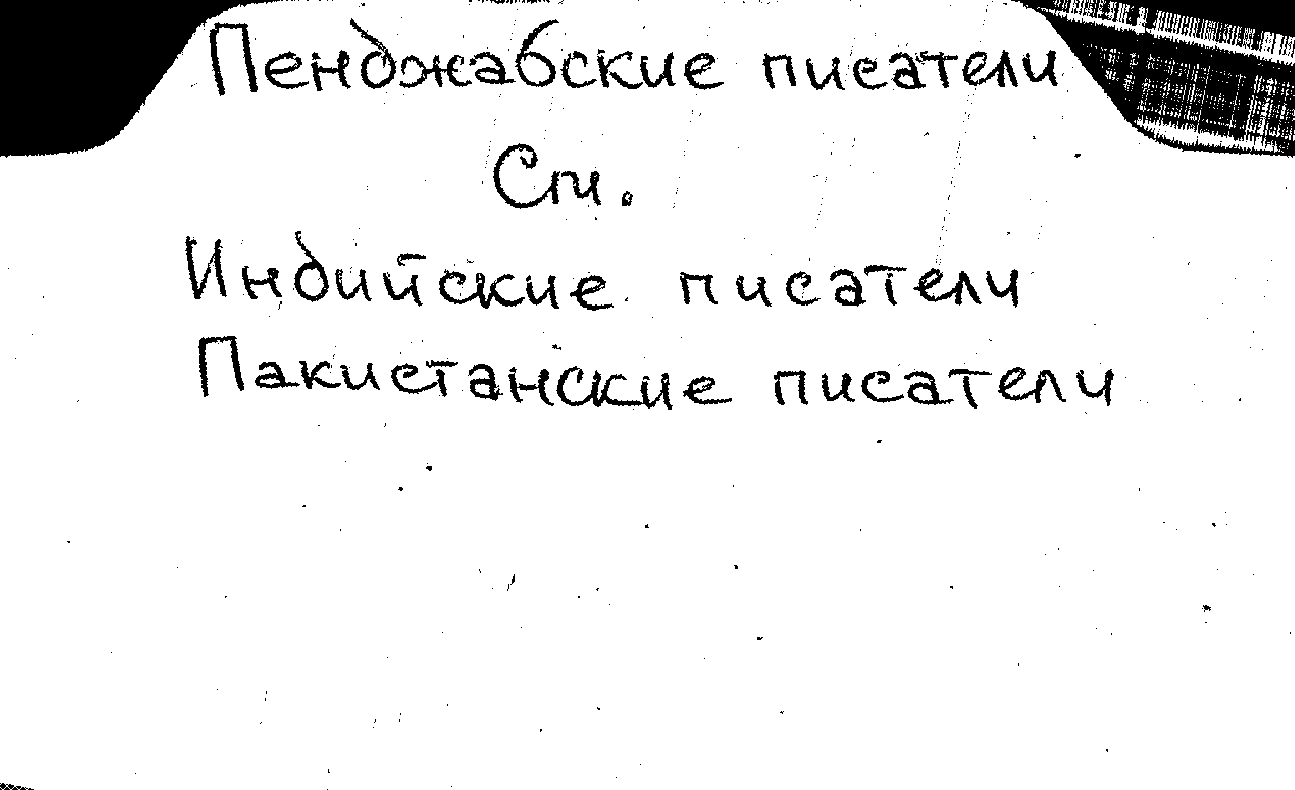 Пенджабские писатели
См.
Индийские писатели
Пакистанские писатели